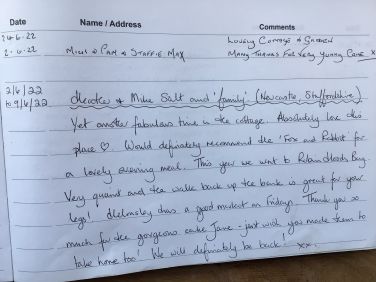 Date Name / Address Comments
24-6-22 Lovely Cottage & Garden
2-4-22 Mick & Pam & Staffie Max Many Thanks For Very Yummy Cake x
2/6/22 Heather & Mike Salt and 'family' (Newcastle, Staffordshire)
to 9/6/22
Yet another fabulous time in the cottage. Absolutely love this
place ♡. Would definately recommend the 'Fox and Rabbit' for
a lovely evening meal. This year we went to Robin Hoods Bay.
Very quaint and the walk back up the bank is great for your
legs! Helmsley has a good market on Fridays. Thank you so
much for the gorgeous cake Jane - just wish you made them to
take home too! We will definately be back! xx.